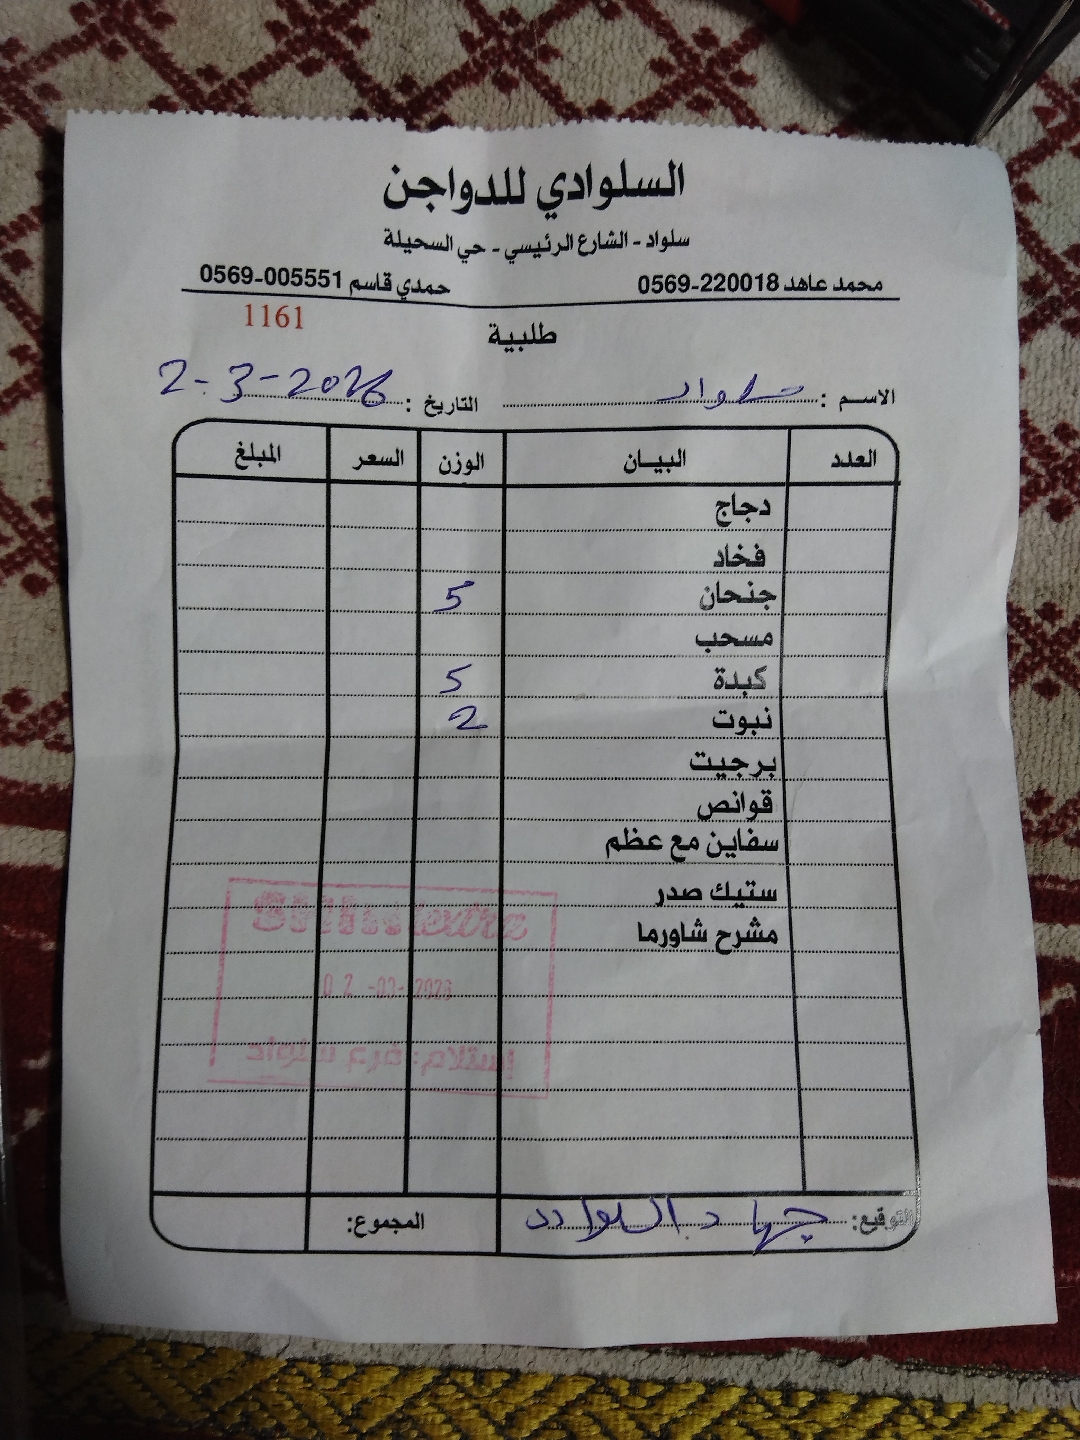 السلوادي للدواجن
سلواد - الشارع الرئيسي - حي السحيلة
محمد عاهد 0569-220018 حمدي قاسم 0569-005551
1161
طلبية
الاسم : سلواد التاريخ : 2-3-2026
العدد البيان الوزن السعر المبلغ
دجاج
فخاد
جنحان 5
مسحب
كبدة 5
نبوت 2
برجيت
قوانص
سفاين مع عظم
ستيك صدر
مشرح شاورما
extra
02-03-2026
إستلام: فرع سلواد
التوقيع: جهاد السلوادي المجموع: